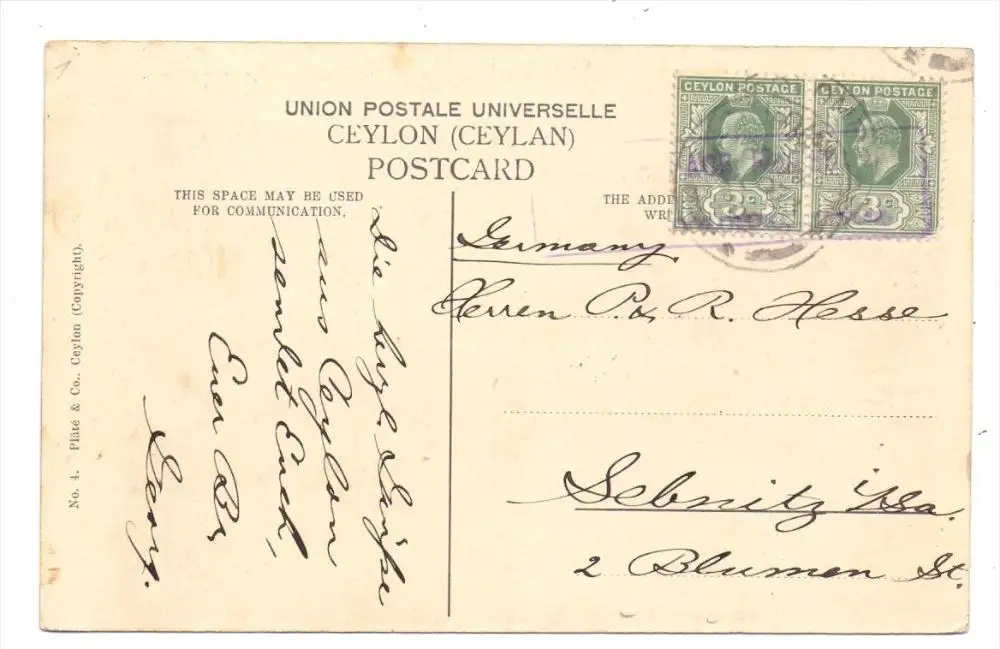 UNION POSTALE UNIVERSELLE
CEYLON (CEYLAN)
POSTCARD
THIS SPACE MAY BE USED
FOR COMMUNICATION,
THE ADD
WRI
CEYLON POSTAGE
3c
CEYLON POSTAGE
3c
Die herzl. Grüsse
aus Ceylon
sendet Euch,
Euer Br.
Georg.
Germany
Herren P. & R. Hesse
Sebnitz i/Sa.
2 Blumen St.
No. 4. Plâté & Co., Ceylon (Copyright).